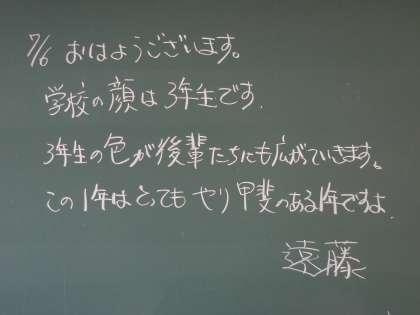 7/6 おはようございます。
学校の顔は3年生です.
3年生の色が後輩たちにも広がっていきます。
この1年はとても やり甲斐のある1年ですよ.
遠藤